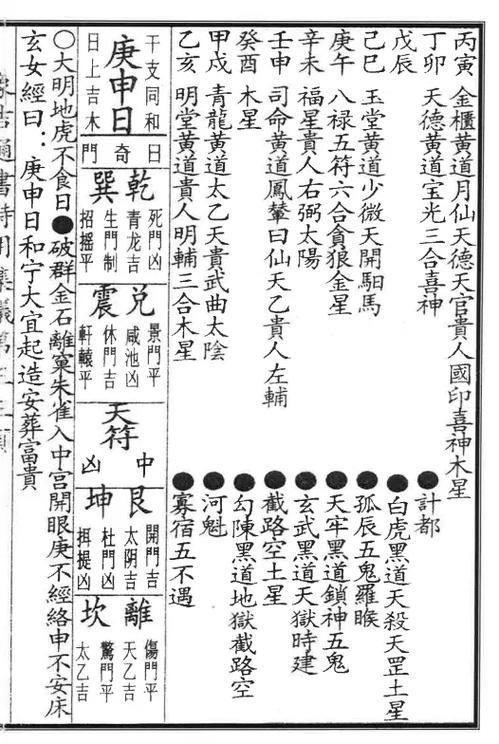 丙寅 金櫃黃道月仙天德天官貴人國印喜神木星
丁卯 天德黃道宝光三合喜神 ●計都
戊辰 ●白虎黑道天殺天罡土星
己巳 玉堂黃道少微天開馹馬 ●孤辰五鬼羅睺
庚午 八禄五符六合貪狼金星 ●天牢黑道鎖神五鬼
辛未 福星貴人右弼太陽 ●玄武黑道天獄時建
壬申 司命黃道鳳輦曰仙天乙貴人左輔 ●截路空土星
癸酉 木星 ●勾陳黑道地獄截路空
甲戌 青龍黃道太乙天貴武曲太陰 ●河魁
乙亥 明堂黃道貴人明輔三合木星 ●寡宿五不遇
干支同和
庚申日
日上吉木
日奇門
乾
死門凶
青龙吉
巽
生門制
招摇平
兌
景門平
咸池凶
震
休門吉
軒轅平
天符
中
凶
艮
開門吉
太阴吉
坤
杜門凶
挕提凶
離
傷門平
天乙吉
坎
驚門平
太乙吉
○大明地虎不食日●破群金石離窠朱雀入中宫開眼庚不經絡申不安床
玄女經曰：庚申日和宁大宜起造安葬富貴